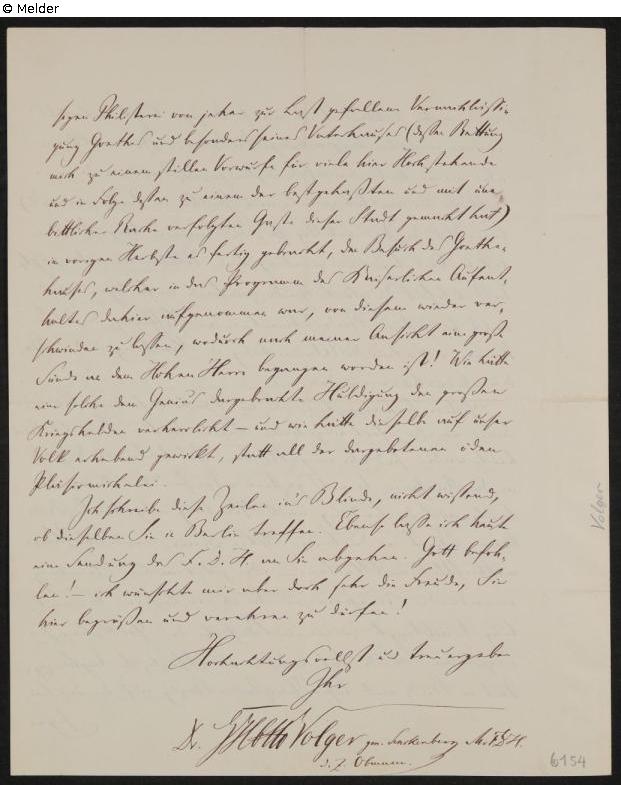 © Melder
sigen Philisterei von jeher zur Last gefallene Vernachlässi-
gung Goethes und besonders seines Vaterhauses (dessen Rettung
mich zu einem stillen Vorwurfe für viele hier Hochstehende
und in Folge dessen zu einem der bestgehaßten und mit
bittlicher Rache verfolgten Gaste dieser Stadt gemacht hat)
im vorigen Herbste es fertig gebracht, den Besuch des Goethe-
hauses, welcher in das Programm des Kaiserlichen Aufent-
haltes dahier aufgenommen war, von diesem wieder ver-
schwinden zu lassen, wodurch nach meiner Ansicht eine große
Sünde an dem Hohen Herrn begangen worden ist! Wie hätte
eine solche dem Genius dargebrachte Huldigung den großen
Kriegshelden verherrlicht – und wie hätte dieselbe auf unser
Volk erhebend gewirkt, statt all der dargebotenen öden
Pläsirmichelei.
Ich schreibe diese Zeilen in's Blinde, nicht wissend,
ob dieselben Sie in Berlin treffen. Ebenso lasse ich heute
eine Sendung des F. D. H. an Sie abgehen. Gott befoh-
len! – ich wünschte mir aber doch sehr die Freude, Sie
hier begrüßen und verehren zu dürfen!
Hochachtungsvollst und treuergeben
Ihr
Dr. GHOtto Volger gen. Senckenberg M. F. D. H.
d. Z. Obmann.
Volger
6154